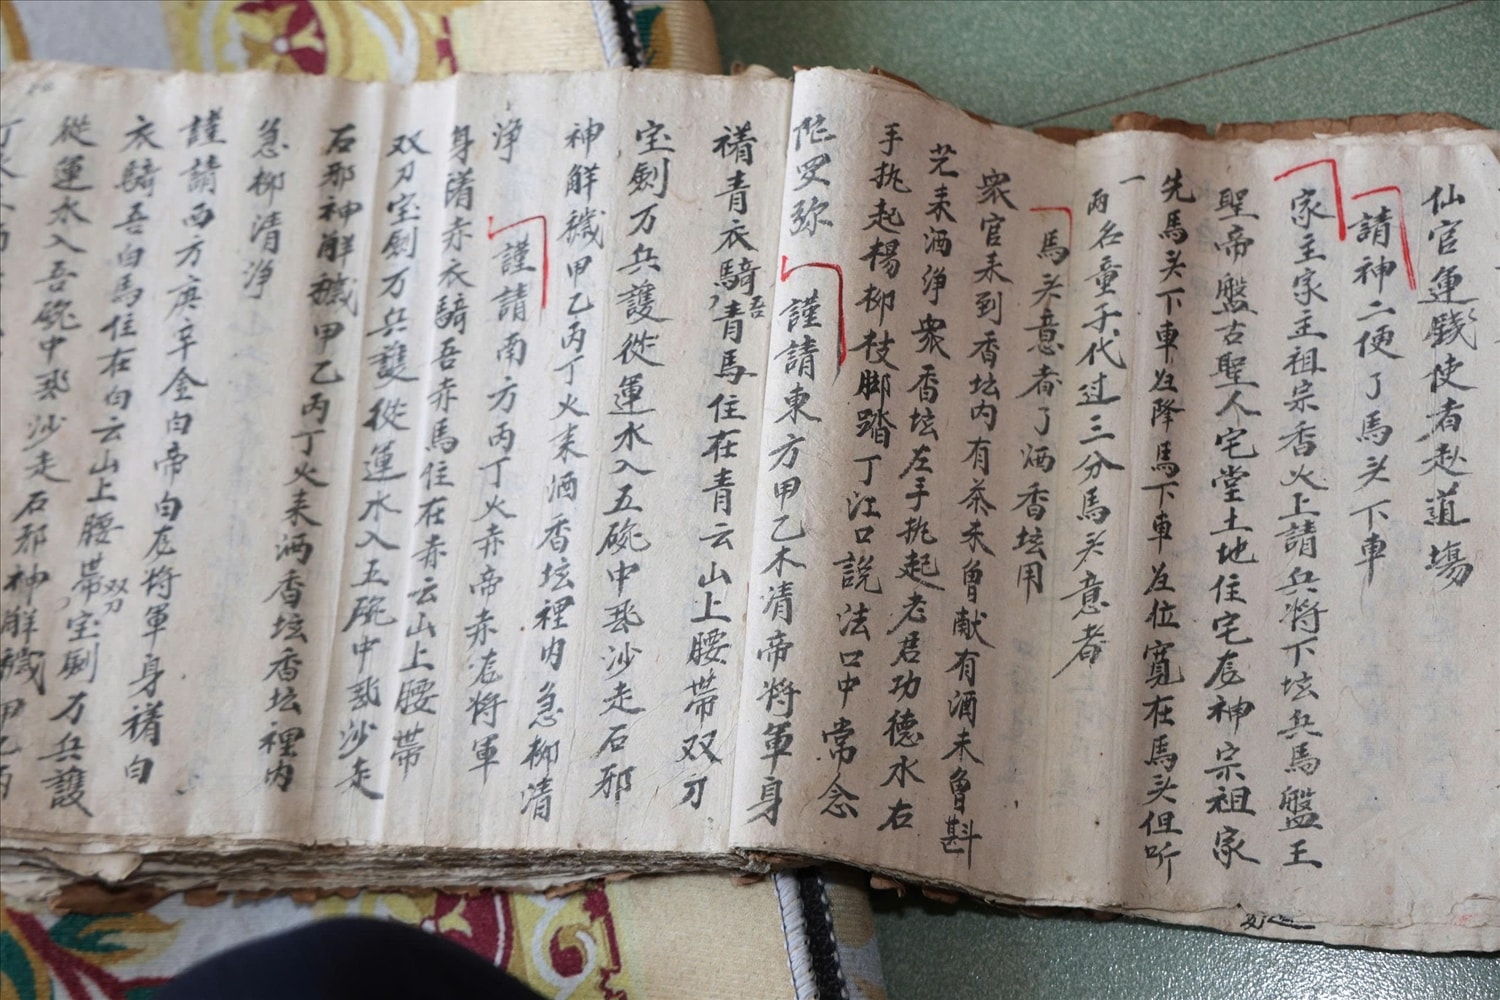 仙官運錢使者赴道場
請神二便了馬头下車
家主家主祖宗香火上請兵将下坛兵馬盤王
聖帝盤古聖人宅堂土地住宅龙神宗祖家
先馬头下車位降馬下車位位寬在馬头但听
一
兩名童子代过三分馬头意者
馬头意者了洒香坛用
衆官来到香坛内有茶未曾献有酒未曾斟
先来洒净衆香坛左手执起老君功德水右
手执起楊柳枝脚踏丁江口說法口中常念
陀嬰弥
謹請東方甲乙木清帝将軍身
禙青衣騎吾青馬住在青云山上腰帶双刀
宝劍万兵護從運水入五碗中飛沙走石邪
神解穢甲乙丙丁火来洒香坛裡内急柳清
净
謹請南方丙丁火赤帝赤龙将軍
身禙赤衣騎吾赤馬住在赤云山上腰帶
双刀宝劍万兵護從運水入五碗中飛沙走
石邪神解穢甲乙丙丁火来洒香坛香坛裡内
急柳清净
謹請西方庚辛金白帝白龙将軍身禙白
衣騎吾白馬住在白云山上腰帶双刀宝劍万兵護
從運水入吾碗中飛沙走石邪神解穢甲乙丙